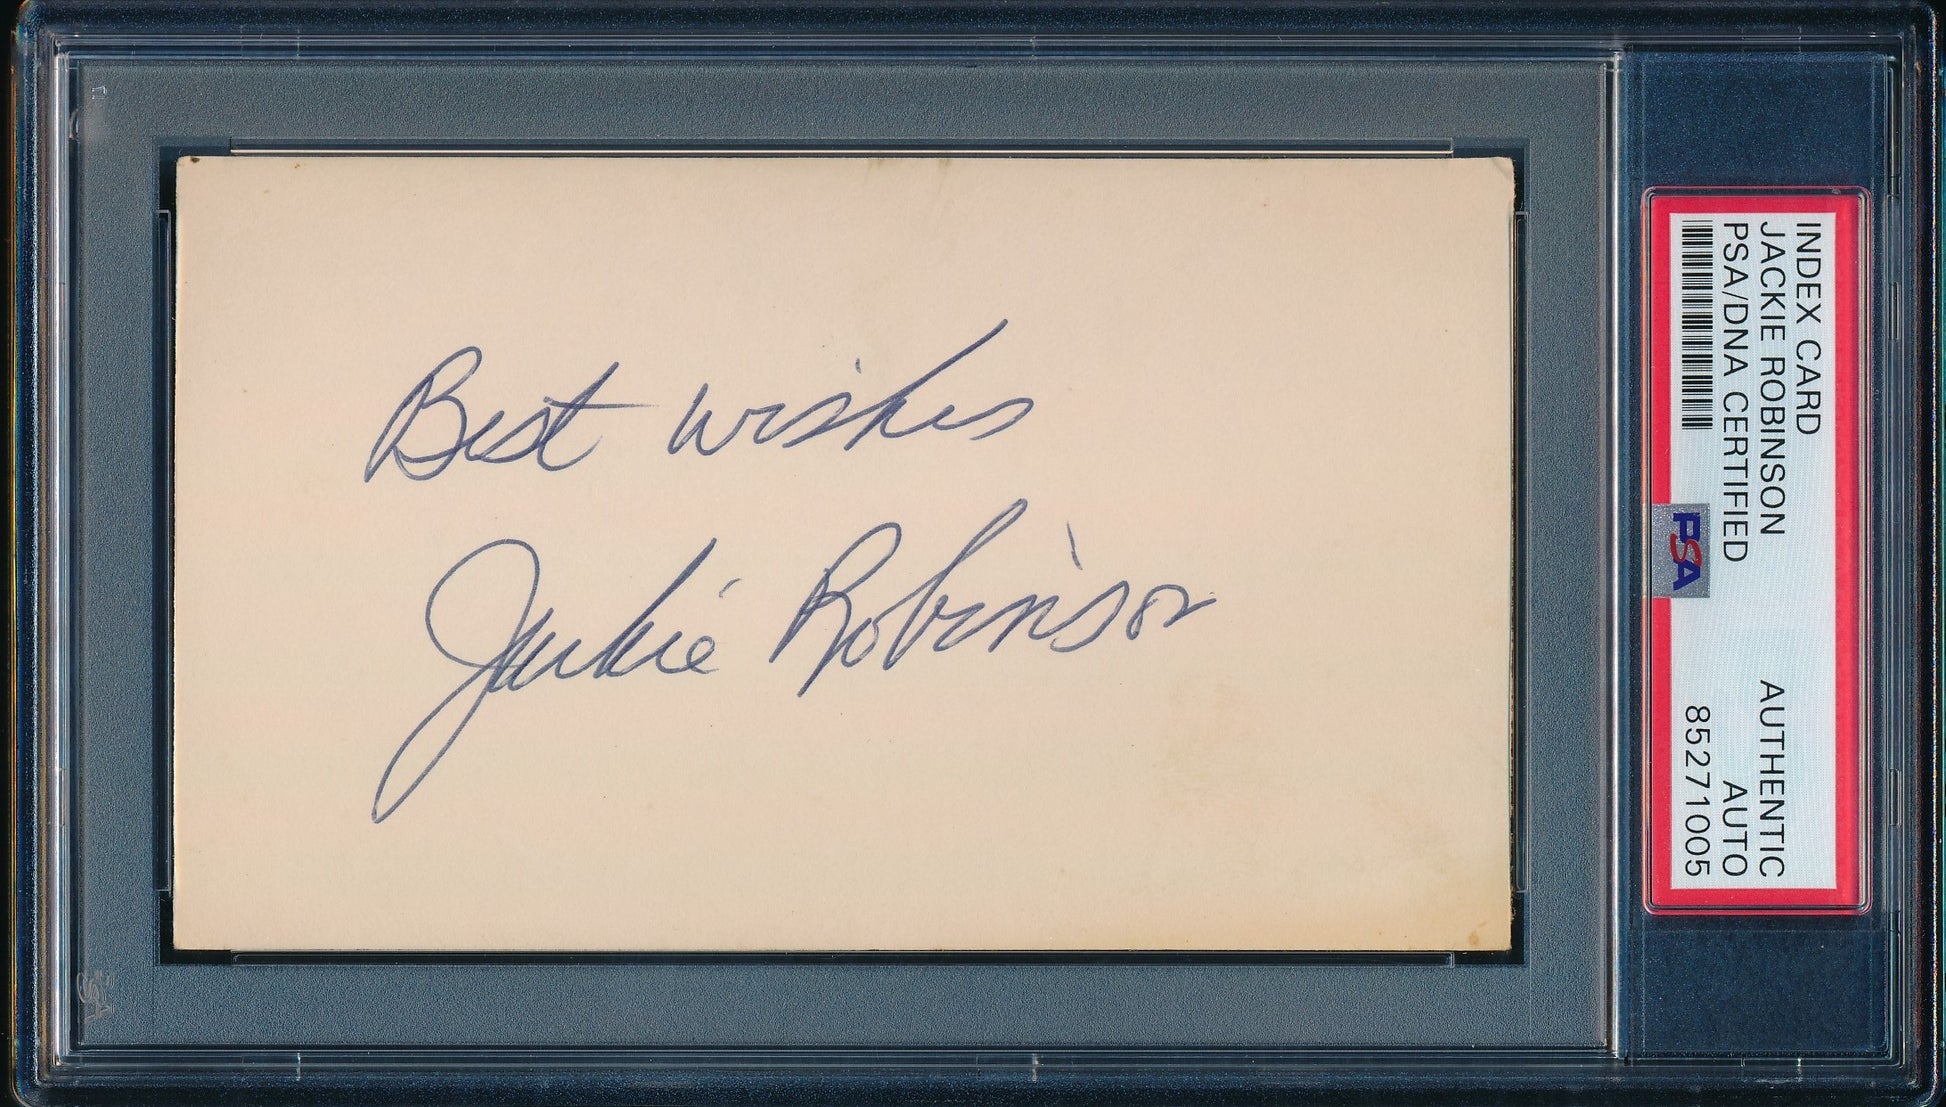 Best wishes
Jackie Robinson
INDEX CARD
JACKIE ROBINSON
PSA/DNA CERTIFIED
AUTHENTIC
AUTO
85271005
PSA